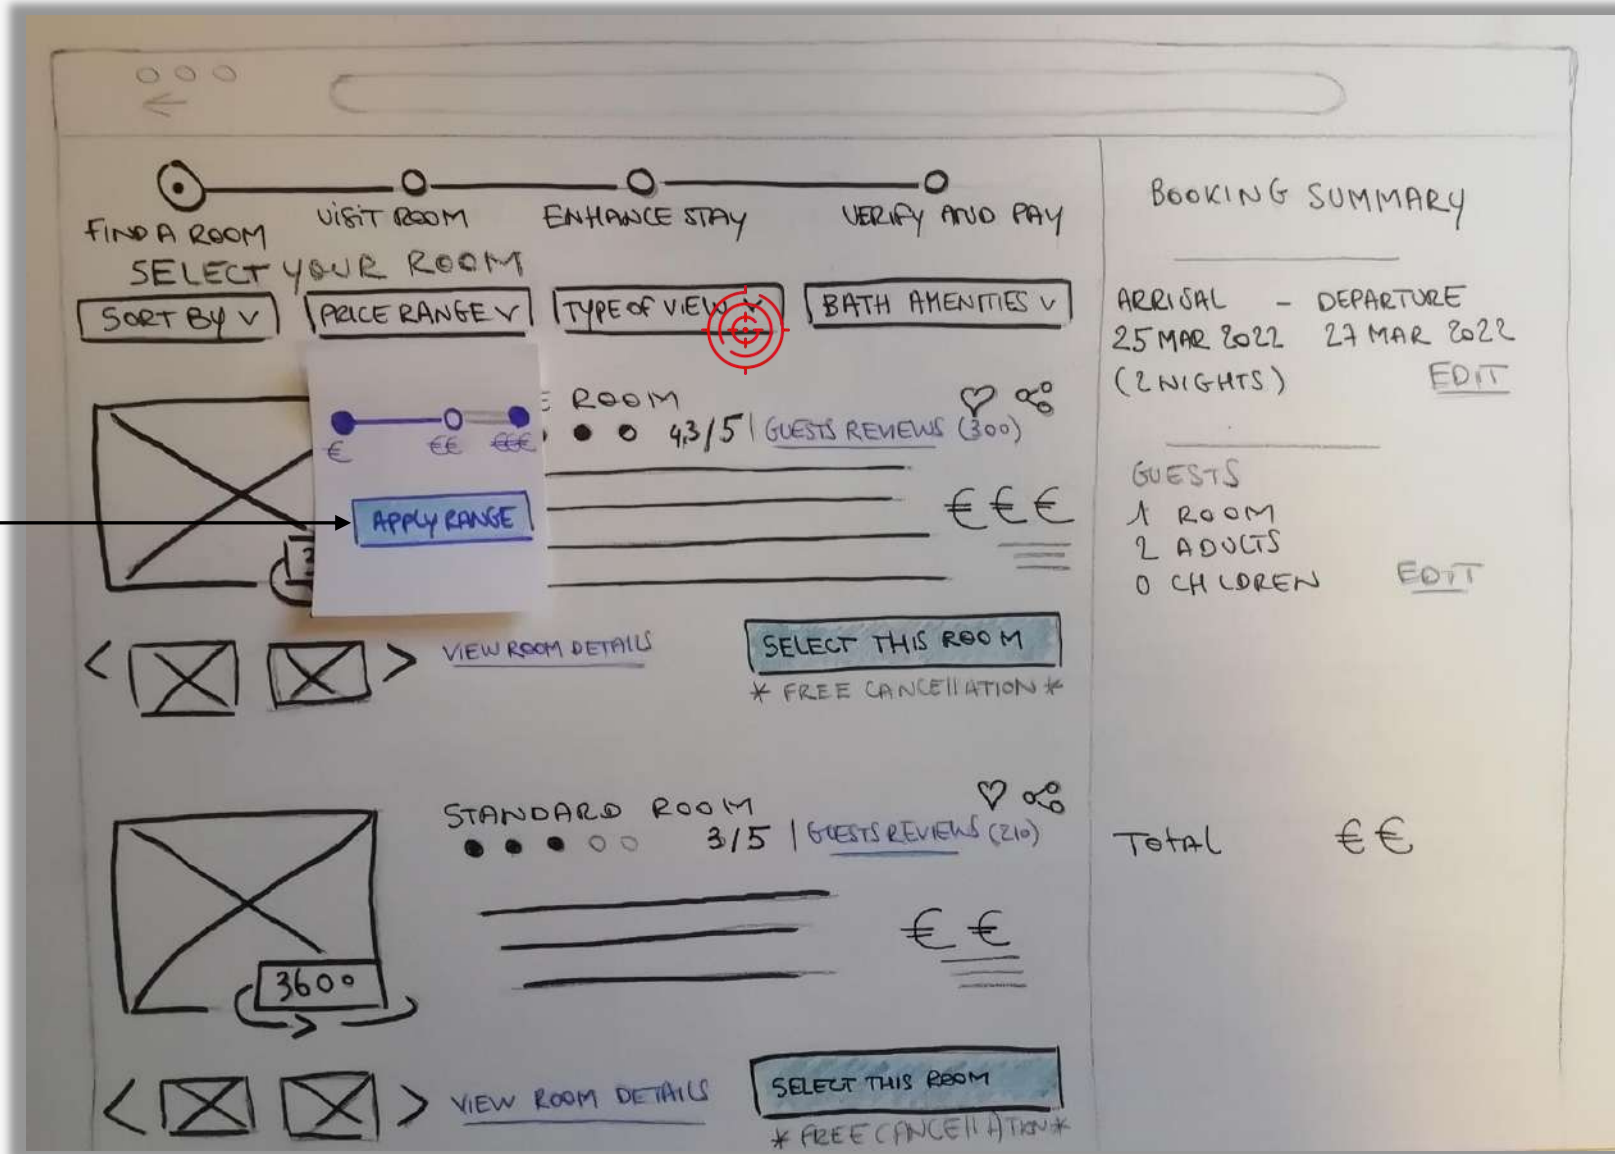 FIND A ROOM
VISIT ROOM
ENHANCE STAY
VERIFY AND PAY
SELECT YOUR ROOM
SORT BY V
PRICE RANGE V
TYPE OF VIEW V
BATH AMENITIES V
E ROOM
4,3/5 | GUESTS REVIEWS (300)
€ €€ €€€
APPLY RANGE
€€€
3
< > VIEW ROOM DETAILS
SELECT THIS ROOM
* FREE CANCEllATION *
STANDARD ROOM
3/5 | GUESTS REVIEWS (210)
€€
360°
< > VIEW ROOM DETAILS
SELECT THIS ROOM
* FREE CANCEllATION *
BOOKING SUMMARY
ARRISAL - DEPARTURE
25 MAR 2022 27 MAR 2022
(2 NIGHTS) EDIT
GUESTS
1 ROOM
2 ADULTS
0 CHLDREN EDIT
TOtAL €€